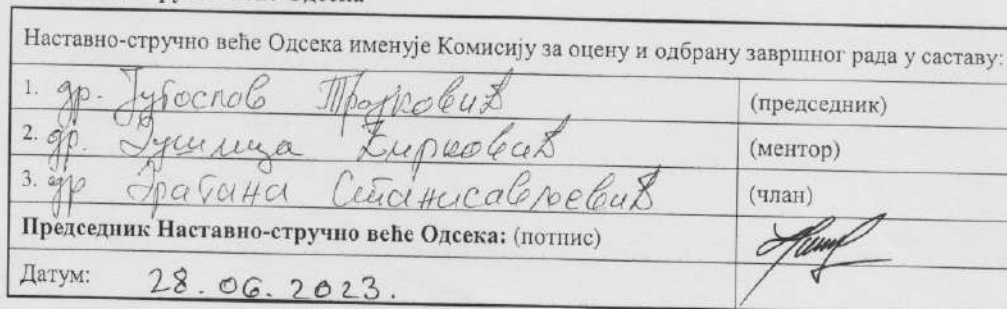 Наставно-стручно веће Одсека именује Комисију за оцену и одбрану завршног рада у саставу:
1. др. Трајковић (председник)
2. др. Душица Ћирковић (ментор)
3. др Драгана Станисављевић (члан)
Председник Наставно-стручно веће Одсека: (потпис)
Датум: 28.06.2023.